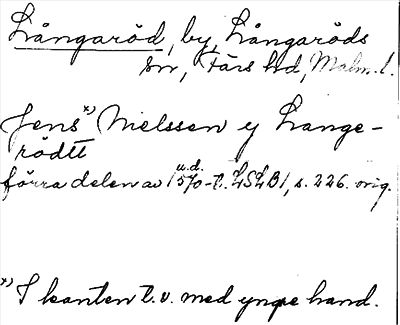 Långaröd, by, Långaröds
sn, Färs hd, Malm. l.
Jens*) Nielssen y Lange-
rödtt
u.d.
förra delen av 1570-t. LSLB1, s. 226. orig.
*) I kanten t.v. med yngre hand.